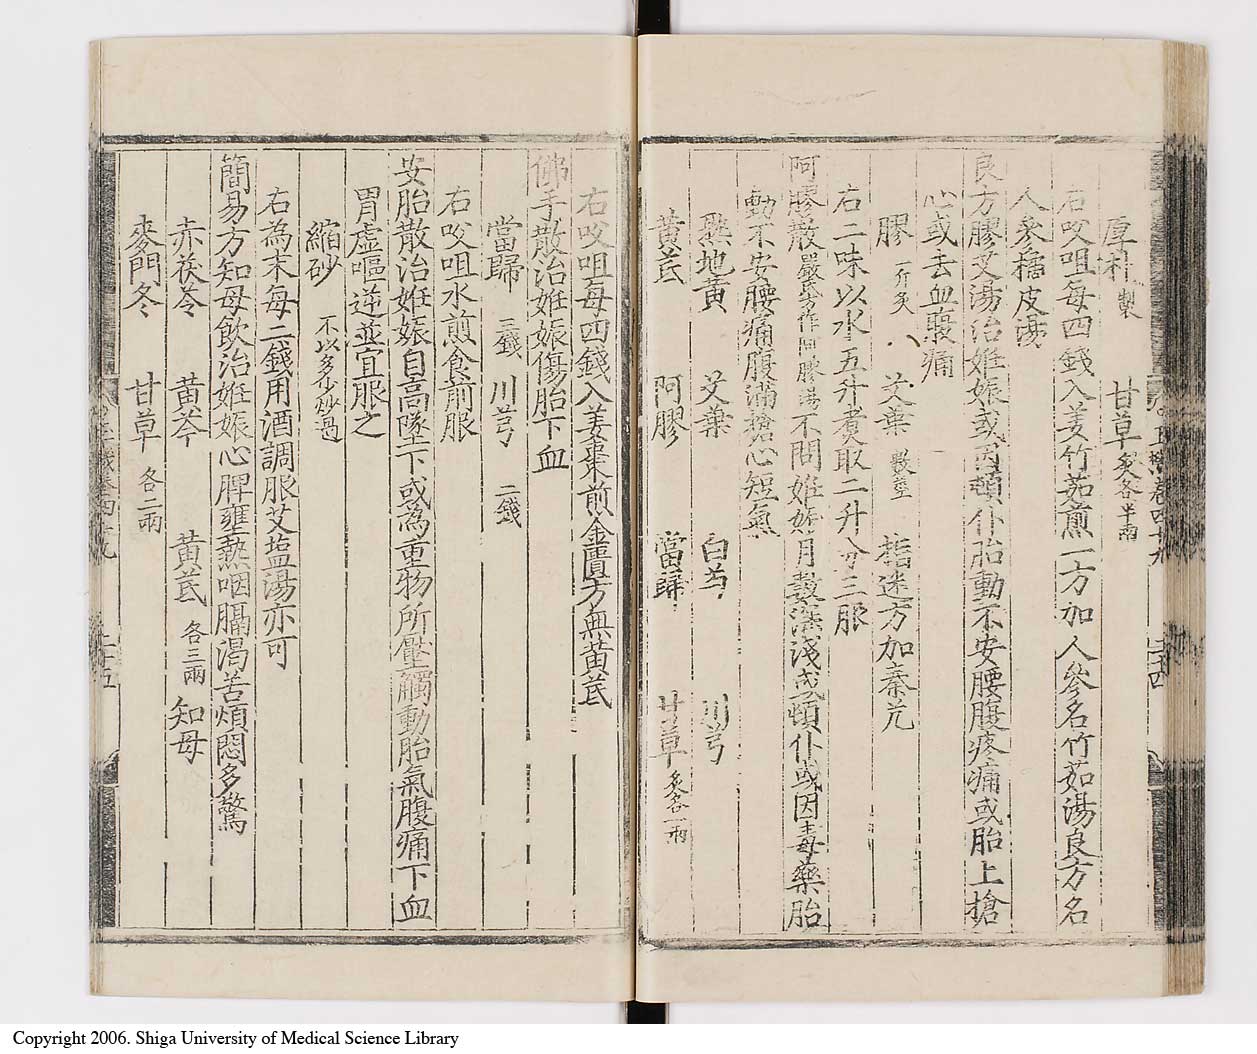 厚朴製 甘草炙各半兩
右㕮咀每四錢入姜竹茹煎一方加人參名竹茹湯良方名
人參橘皮湯
良方膠艾湯治姙娠或因頓仆胎動不安腰腹疼痛或胎上搶
心或去血腹痛
膠一斤炙 艾葉數莖 指迷方加秦艽
右二味以水五升煮取二升分三服
阿膠散嚴氏方作阿膠湯不問姙娠月數深淺或頓仆或因毒藥胎
動不安腰痛腹滿搶心短氣
熟地黃 艾葉 白芍 川芎
黃芪 阿膠 當歸 甘草炙各一兩
右㕮咀每四錢入姜棗煎金匱方無黃芪
佛手散治姙娠傷胎下血
當歸三錢 川芎二錢
右㕮咀水煎食前服
安胎散治姙娠自高墜下或為重物所壓觸動胎氣腹痛下血
胃虛嘔逆並宜服之
縮砂不以多少炒過
右為末每二錢用酒調服艾塩湯亦可
簡易方知母飲治姙娠心脾壅熱咽膈渴苦煩悶多驚
赤茯苓 黃芩 黃芪各三兩 知母
麥門冬 甘草各二兩
Copyright 2006. Shiga University of Medical Science Library